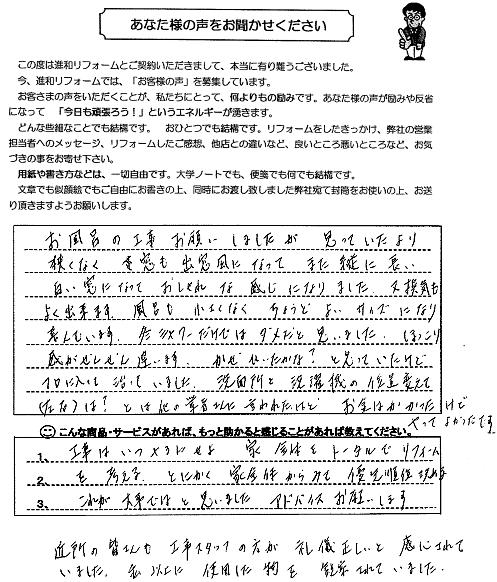 あなた様の声をお聞かせください
この度は進和リフォームとご契約いただきまして、本当に有り難うございました。
今、進和リフォームでは、「お客様の声」を募集しています。
お客さまの声をいただくことが、私たちにとって、何よりもの励みです。あなた様の声が励みや反省
になって 「今日も頑張ろう！」というエネルギーが湧きます。
どんな些細なことでも結構です。 おひとつでも結構です。リフォームをしたきっかけ、弊社の営業
担当者へのメッセージ、リフォームしたご感想、他店との違いなど、良いところ悪いところなど、お気
づきの事をお寄せ下さい。
用紙や書き方などは、一切自由です。大学ノートでも、便箋でも何でも結構です。
文章でも似顔絵でもご自由にお書きの上、同時にお渡し致しました弊社宛て封筒をお使いの上、お送
り頂きますようお願いします。
お風呂の工事 お願いしましたが 思っていたより
狭くなく 窓も 出窓風になって また縦に長い
白い窓になって おしゃれな感じになりました. 又換気も
よく出来ます. 風呂も 小さくなく ちょうどよいサイズになり
喜んでいます. だけでは ダメだと思いました.
がぜんぜん違います. かな? と思っていたけど
プロに入 いました. 洗面所と 洗濯機の位置変えて
は? とは他の業者さんに言われたけど お金はかかったけど
やってよかったです
こんな商品・サービスがあれば、もっと助かると感じることがあれば教えてください。
1、 工事はいつ せよ 家全体をトータルでリフォーム
2、 を考える. とにかく 家全体からみて 優先順位
3、 これが大事ではと思いました アドバイスお願いします
近所の皆さんも 工事スタッフの方が 礼儀正しいと 感じされて
いました. 私以上に 使用した物を 観察されていました.